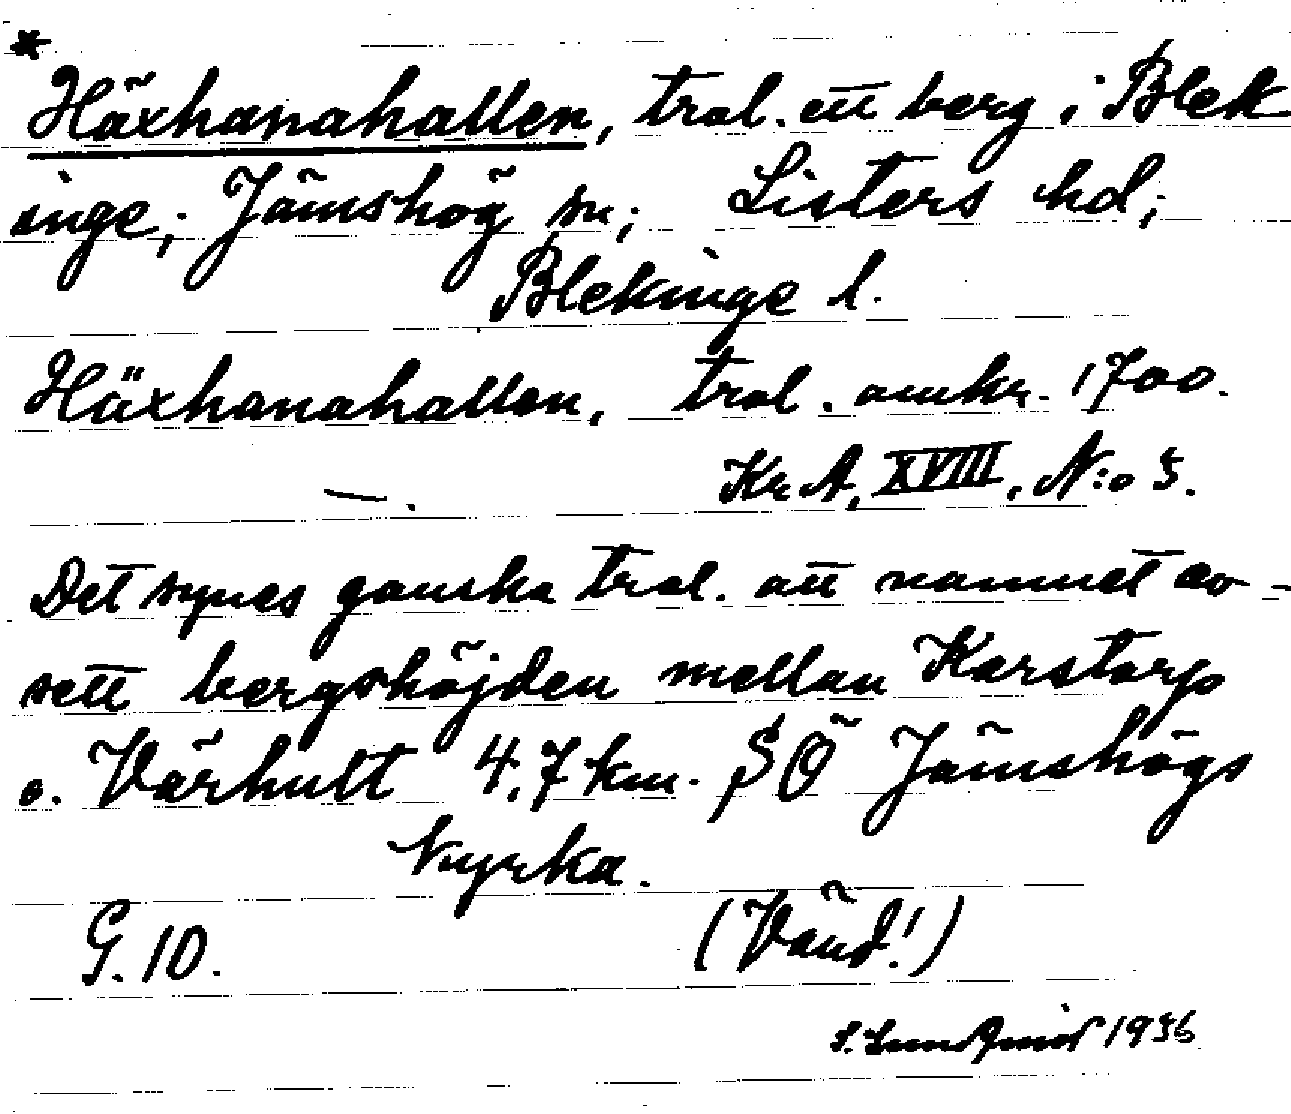 *
Häxhanahallen, trol. ett berg i Blek
inge; Jämshög sn; Listers hd;
Blekinge l.
Häxhanahallen, trol. omkr. 1700.
—. Kr A, XVIII, N:o 5.
Det synes ganska trol. att namnet av-
sett bergshöjden mellan Karstorp
o. Värhult 4,7 km. SÖ Jämshögs
kyrka.
G. 10. (Vänd!)
S. Lundqvist 1936